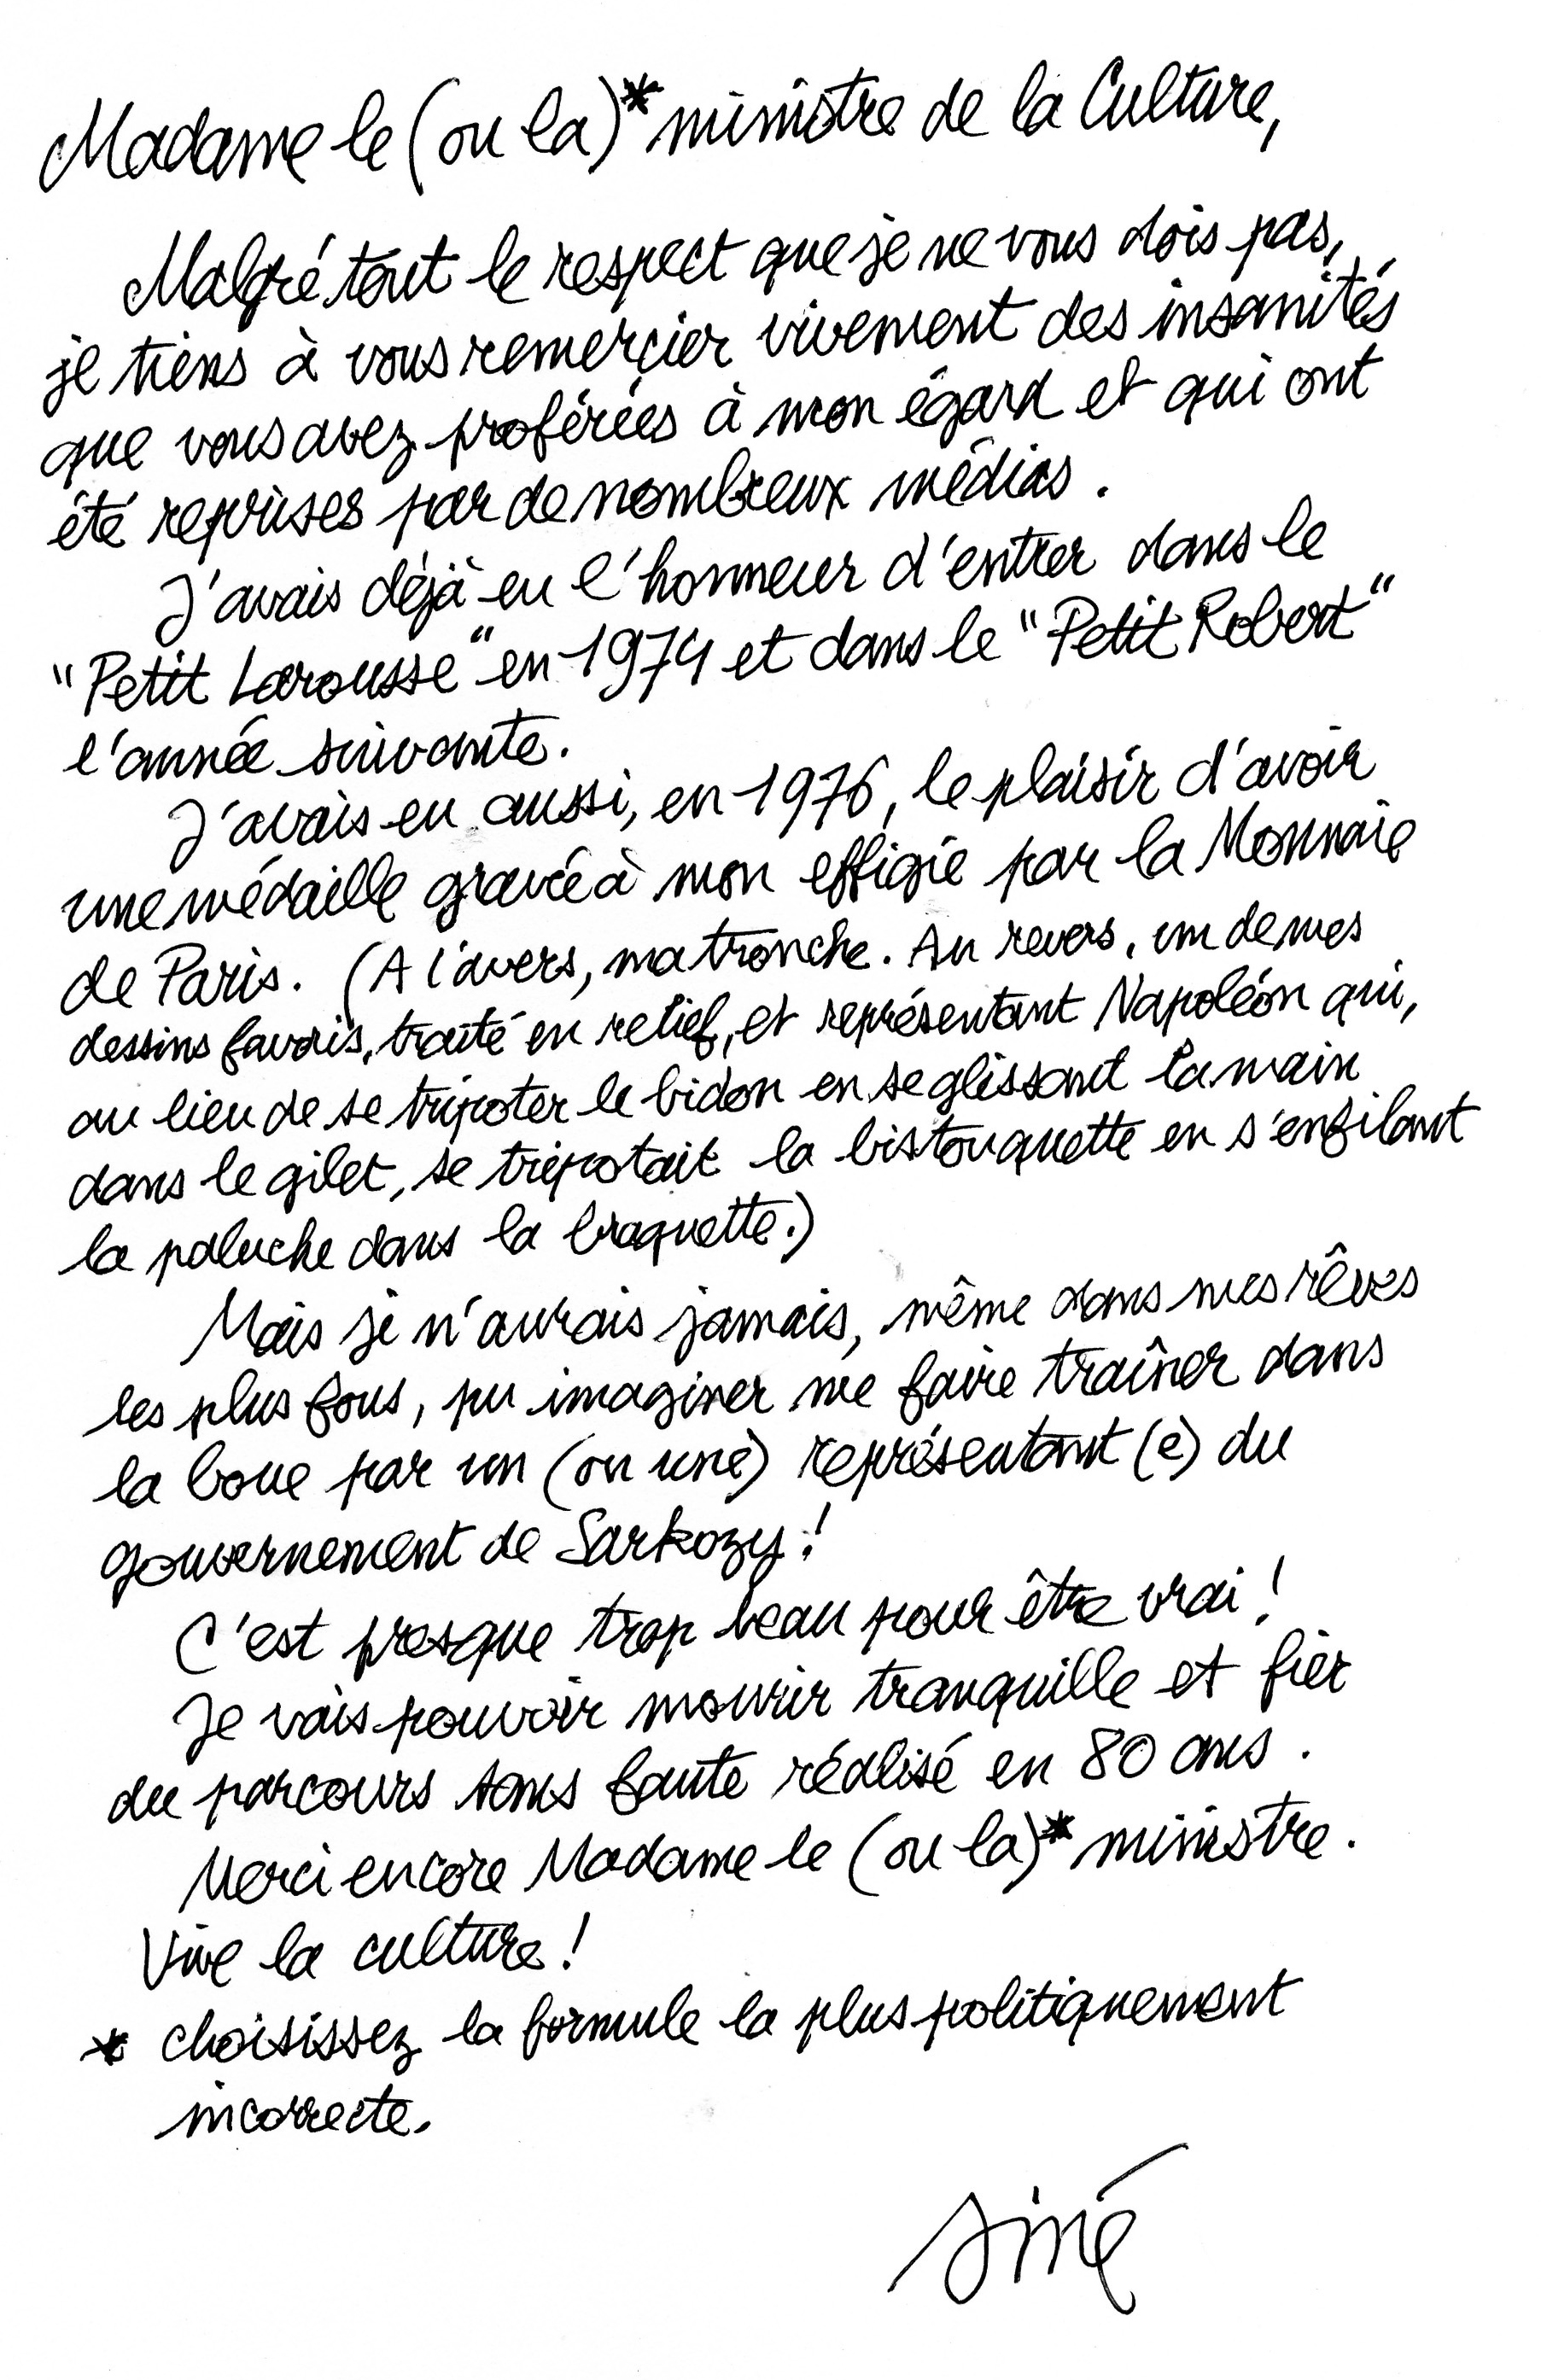 Madame le (ou la)* ministre de la Culture,
Malgré tout le respect que je ne vous dois pas,
je tiens à vous remercier vivement des insanités
que vous avez proférées à mon égard et qui ont
été reprises par de nombreux médias.
J'avais déjà eu l'honneur d'entrer dans le
"Petit Larousse" en 1974 et dans le "Petit Robert"
l'année suivante.
J'avais eu aussi, en 1976, le plaisir d'avoir
une médaille gravée à mon effigie par la Monnaie
de Paris. (A l'avers, ma tronche. Au revers, un de mes
dessins favoris, traité en relief, et représentant Napoléon qui,
au lieu de se tripoter le bidon en se glissant la main
dans le gilet, se tripotait la bistouquette en s'enfilant
la paluche dans la braguette.)
Mais je n'aurais jamais, même dans mes rêves
les plus fous, pu imaginer me faire traîner dans
la boue par un (ou une) représentant(e) du
gouvernement de Sarkozy !
C'est presque trop beau pour être vrai !
Je vais pouvoir mourir tranquille et fier
du parcours sans faute réalisé en 80 ans.
Merci encore Madame le (ou la)* ministre.
Vive la culture !
* choisissez la formule la plus politiquement
incorrecte.
Siné